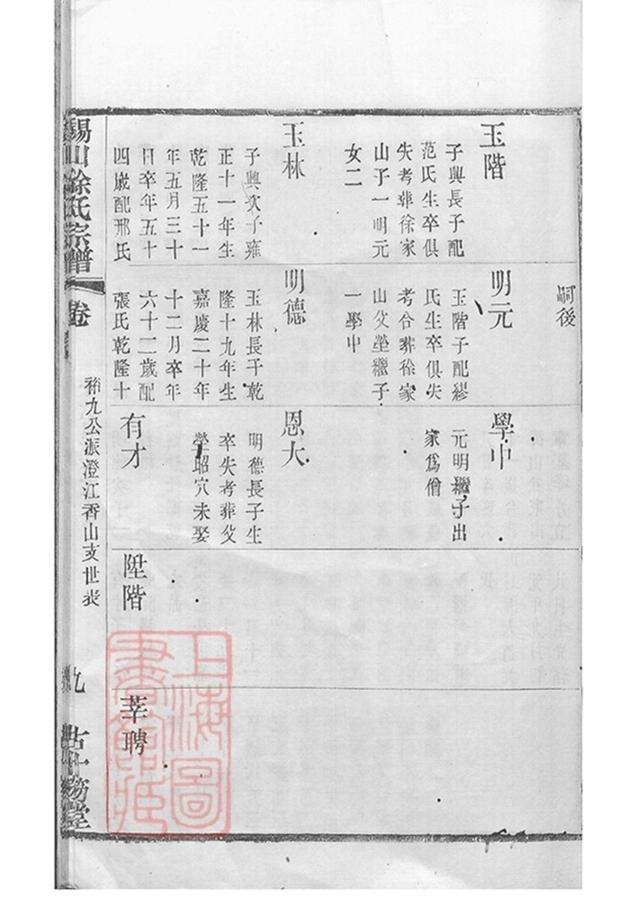 嗣後
玉階
子興長子配
范氏生卒俱
失考葬徐家
山子一明元
女二
明元
玉階子配繆
氏生卒俱失
考合葬徐家
山父塋繼子
一學中
學中
元明繼子出
家爲僧
玉林
子興次子雍
正十一年生
乾隆五十一
年五月三十
日卒年五十
四歲配邢氏
明德
玉林長子乾
隆十九年生
嘉慶二十年
十二月卒年
六十二歲配
張氏乾隆十
恩大
明德長子生
卒失考葬父
塋昭穴未娶
有才
陞階
莘聘
錫山徐氏宗譜
卷
裕九公派澄江香山支世表
九
上海圖書館藏